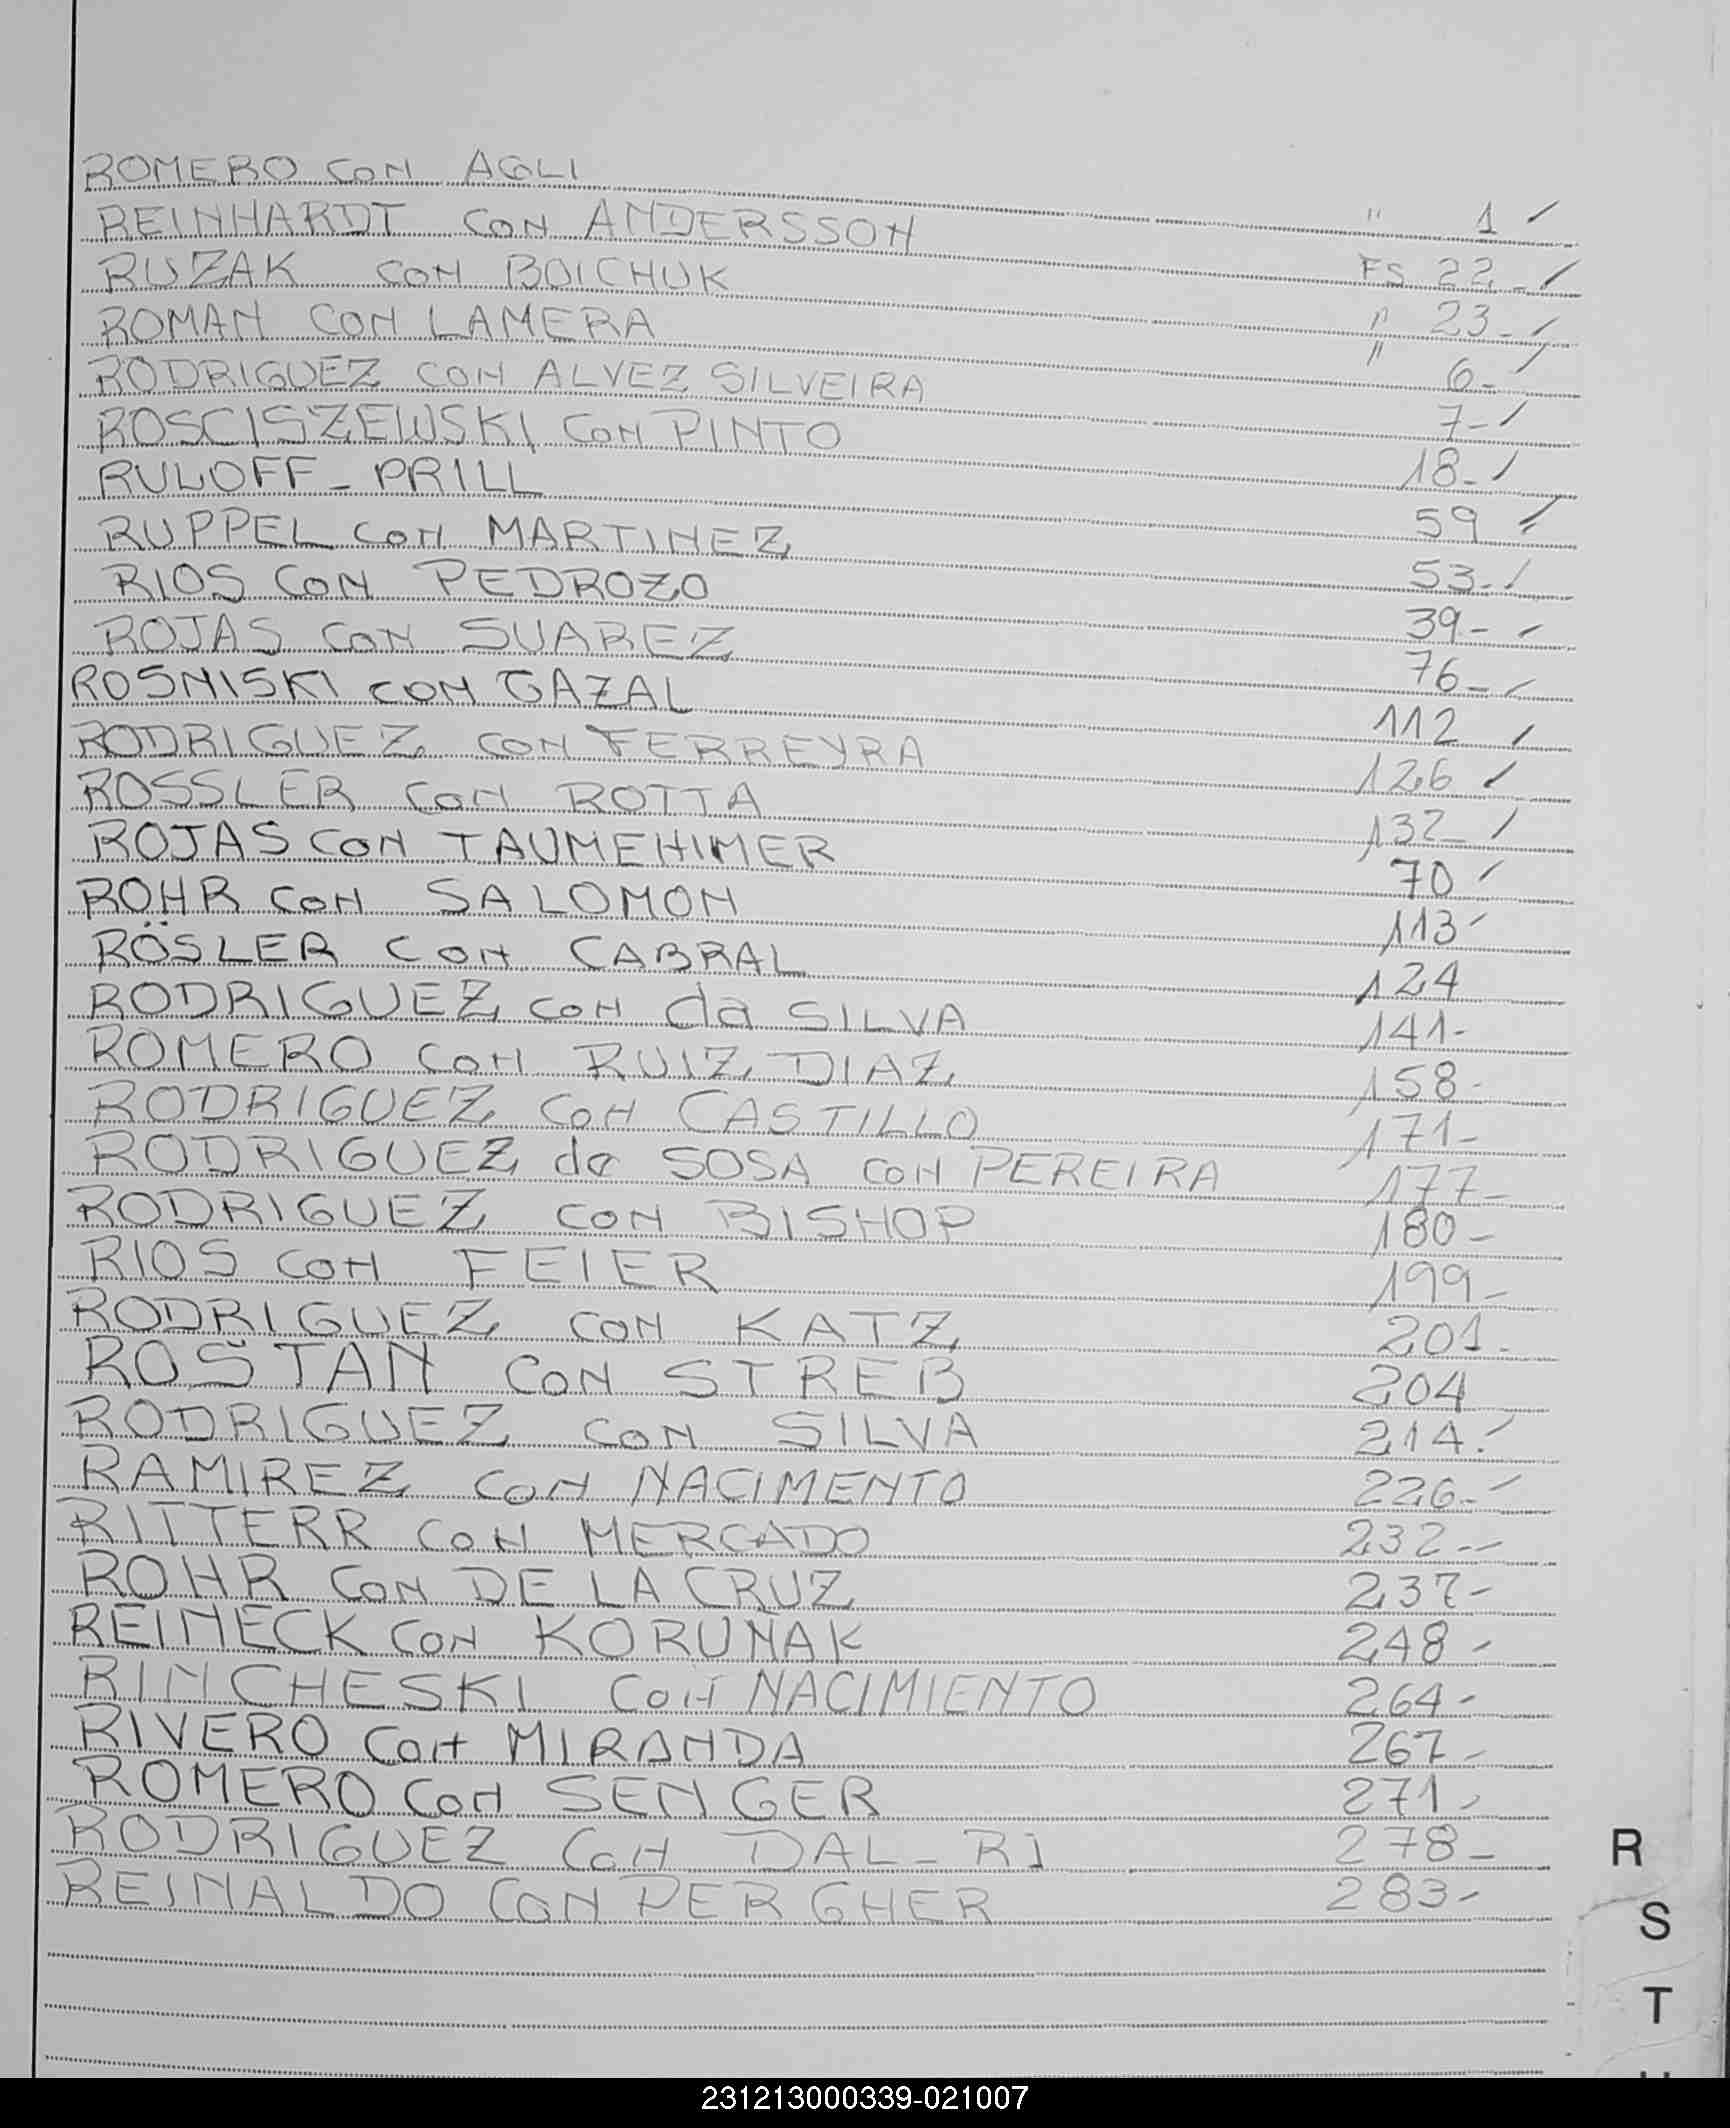 ROMERO CON AGLI " 1
REINHARDT CON ANDERSSON FS 22-
RUZAK CON BOICHUK " 23-
ROMAN CON LAMERA " 6-
RODRIGUEZ CON ALVEZ SILVEIRA 7-
ROSCISZEWSKI CON PINTO 18-
RULOFF - PRILL 59
RUPPEL CON MARTINEZ 53-
RIOS CON PEDROZO 39-
ROJAS CON SUAREZ 76-
ROSNISKI CON GAZAL 112
RODRIGUEZ CON FERREYRA 126
ROSSLER CON ROTTA 132-
ROJAS CON TAUMEHIMER 70
ROHR CON SALOMON 113
RÖSLER CON CABRAL 124
RODRIGUEZ CON da SILVA 141-
ROMERO CON RUIZ DIAZ 158-
RODRIGUEZ CON CASTILLO 171-
RODRIGUEZ de SOSA CON PEREIRA 177-
RODRIGUEZ CON BISHOP 180-
RIOS CON FEIER 199-
RODRIGUEZ CON KATZ 201-
ROSTAN CON STREB 204
RODRIGUEZ CON SILVA 214-
RAMIREZ CON NACIMENTO 226-
RITTERR CON MERCADO 232--
ROHR CON DE LA CRUZ 237-
REINECK CON KORUÑAK 248-
RINCHESKI CON NACIMIENTO 264-
RIVERO CON MIRANDA 267-
ROMERO CON SENGER 271-
RODRIGUEZ CON DAL-RI 278-
REINALDO CON PERGHER 283-
R
S
T
231213000339-021007